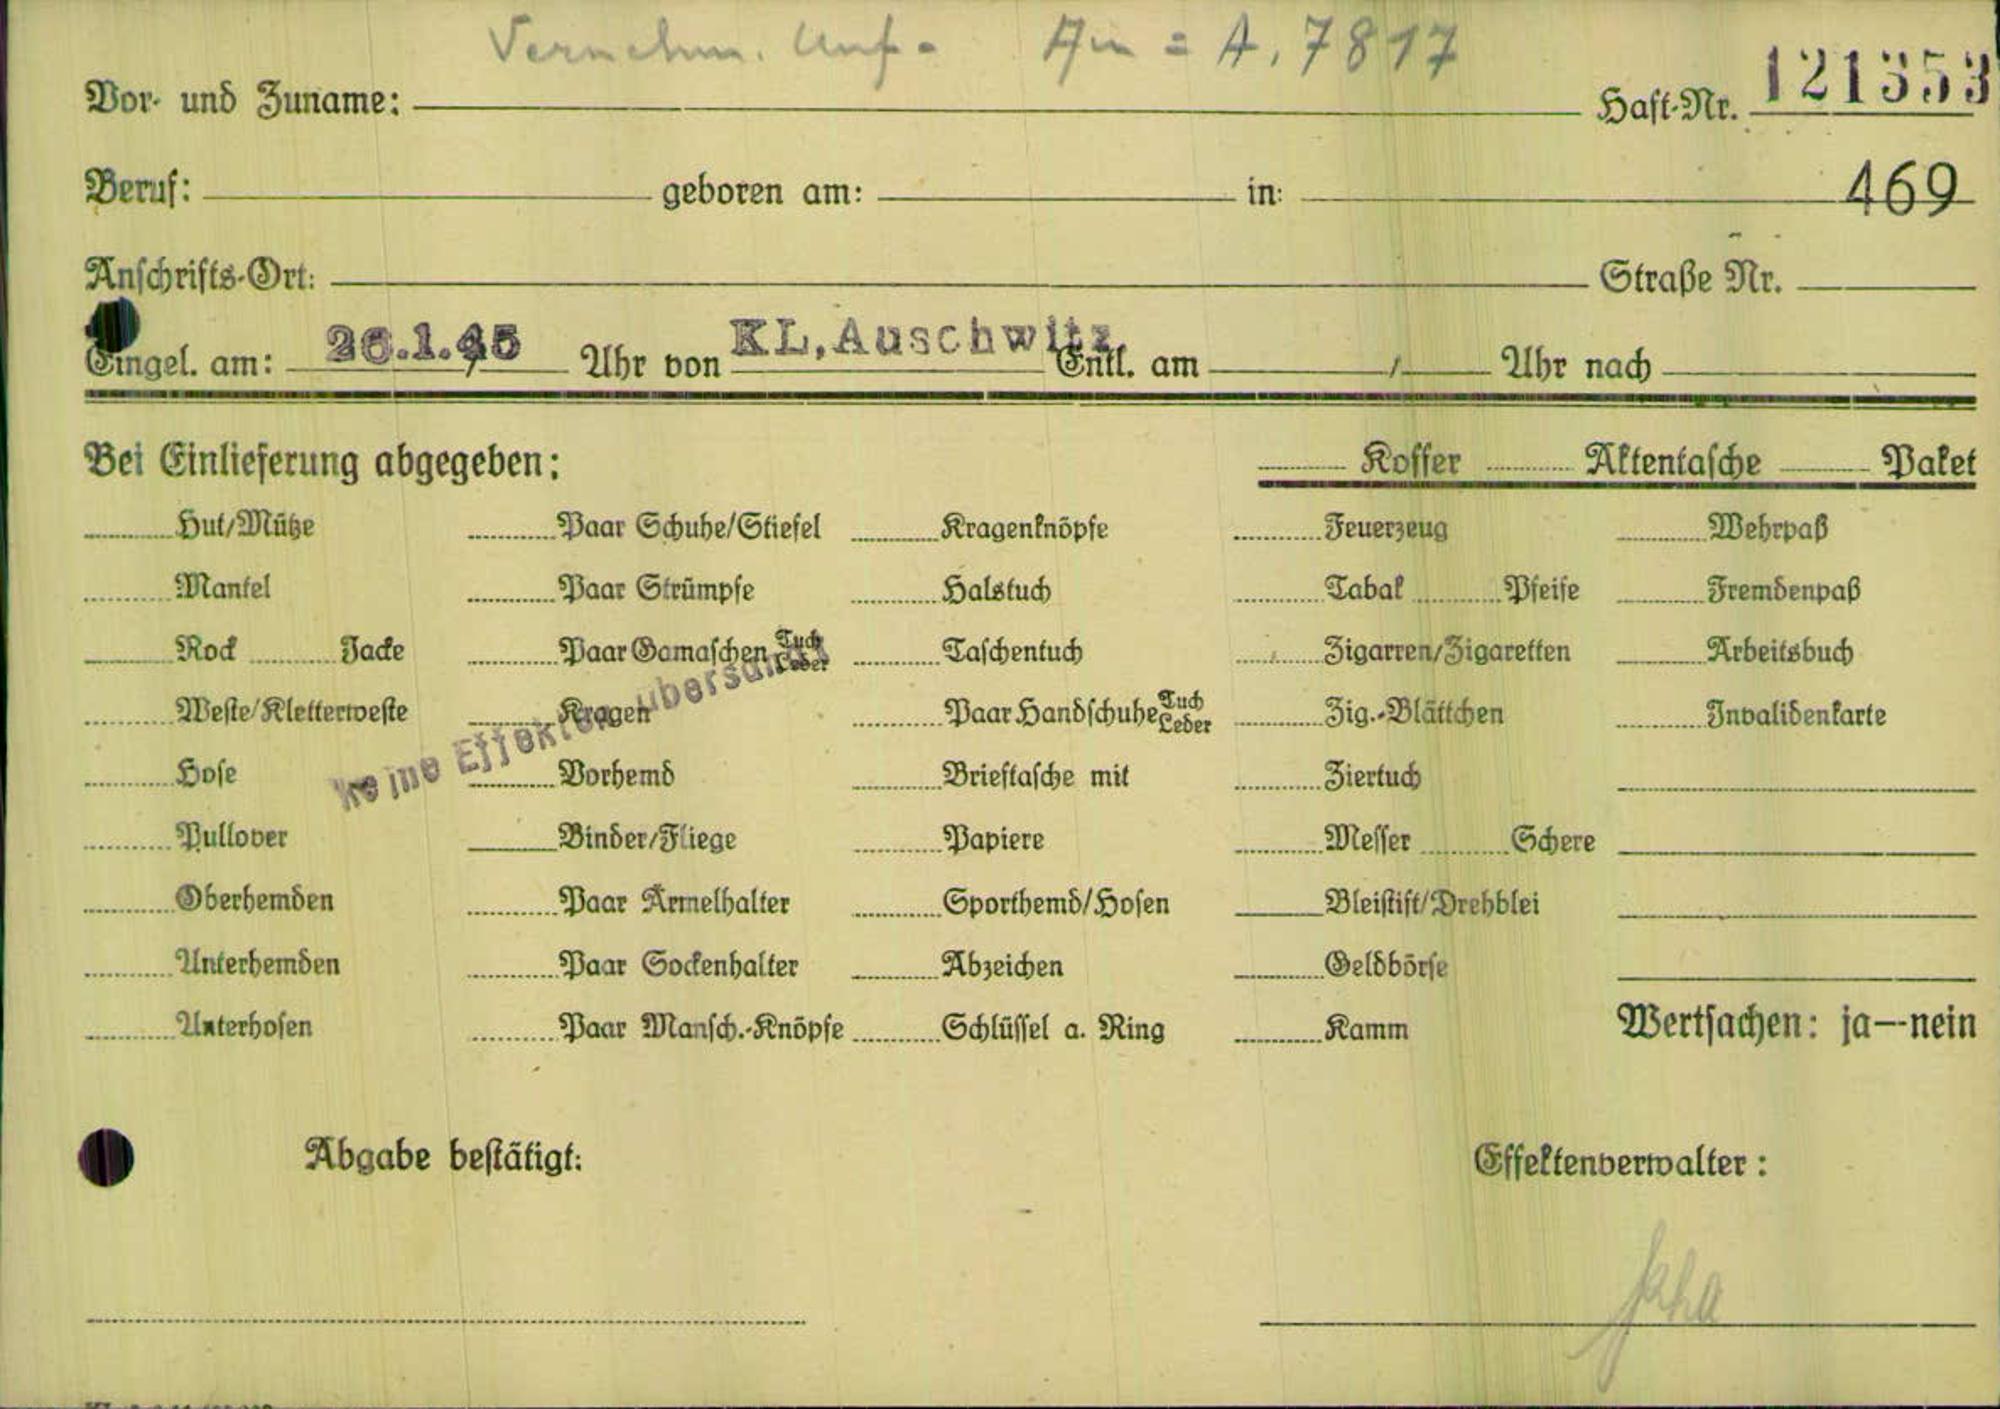 Vernehm. Unf- Au = A. 7817
Vor- und Zuname: Haft-Nr. 121353
Beruf: geboren am: in: 469
Anschrifts-Ort: Straße Nr.
Eingel. am: 26.1.45 Uhr von KL. Auschwitz Entl. am Uhr nach
Bei Einlieferung abgegeben: Koffer Aktentasche Paket
Hut/Mütze Paar Schuhe/Stiefel Kragenknöpfe Feuerzeug Wehrpaß
Mantel Paar Strümpfe Halstuch Tabak Pfeife Fremdenpaß
Rock Jacke Paar Gamaschen Tuch Leder Taschentuch Zigarren/Zigaretten Arbeitsbuch
Weste/Kletterweste Kragen Paar Handschuhe Tuch Leder Zig.-Blättchen Invalidenkarte
keine Effekten übersandt
Hose Vorhemd Brieftasche mit Ziertuch
Pullover Binder/Fliege Papiere Messer Schere
Oberhemden Paar Ärmelhalter Sporthemd/Hosen Bleistift/Drehblei
Unterhemden Paar Sockenhalter Abzeichen Geldbörse
Unterhosen Paar Mansch.-Knöpfe Schlüssel a. Ring Kamm Wertsachen: ja—nein
Abgabe bestätigt: Effektenverwalter: